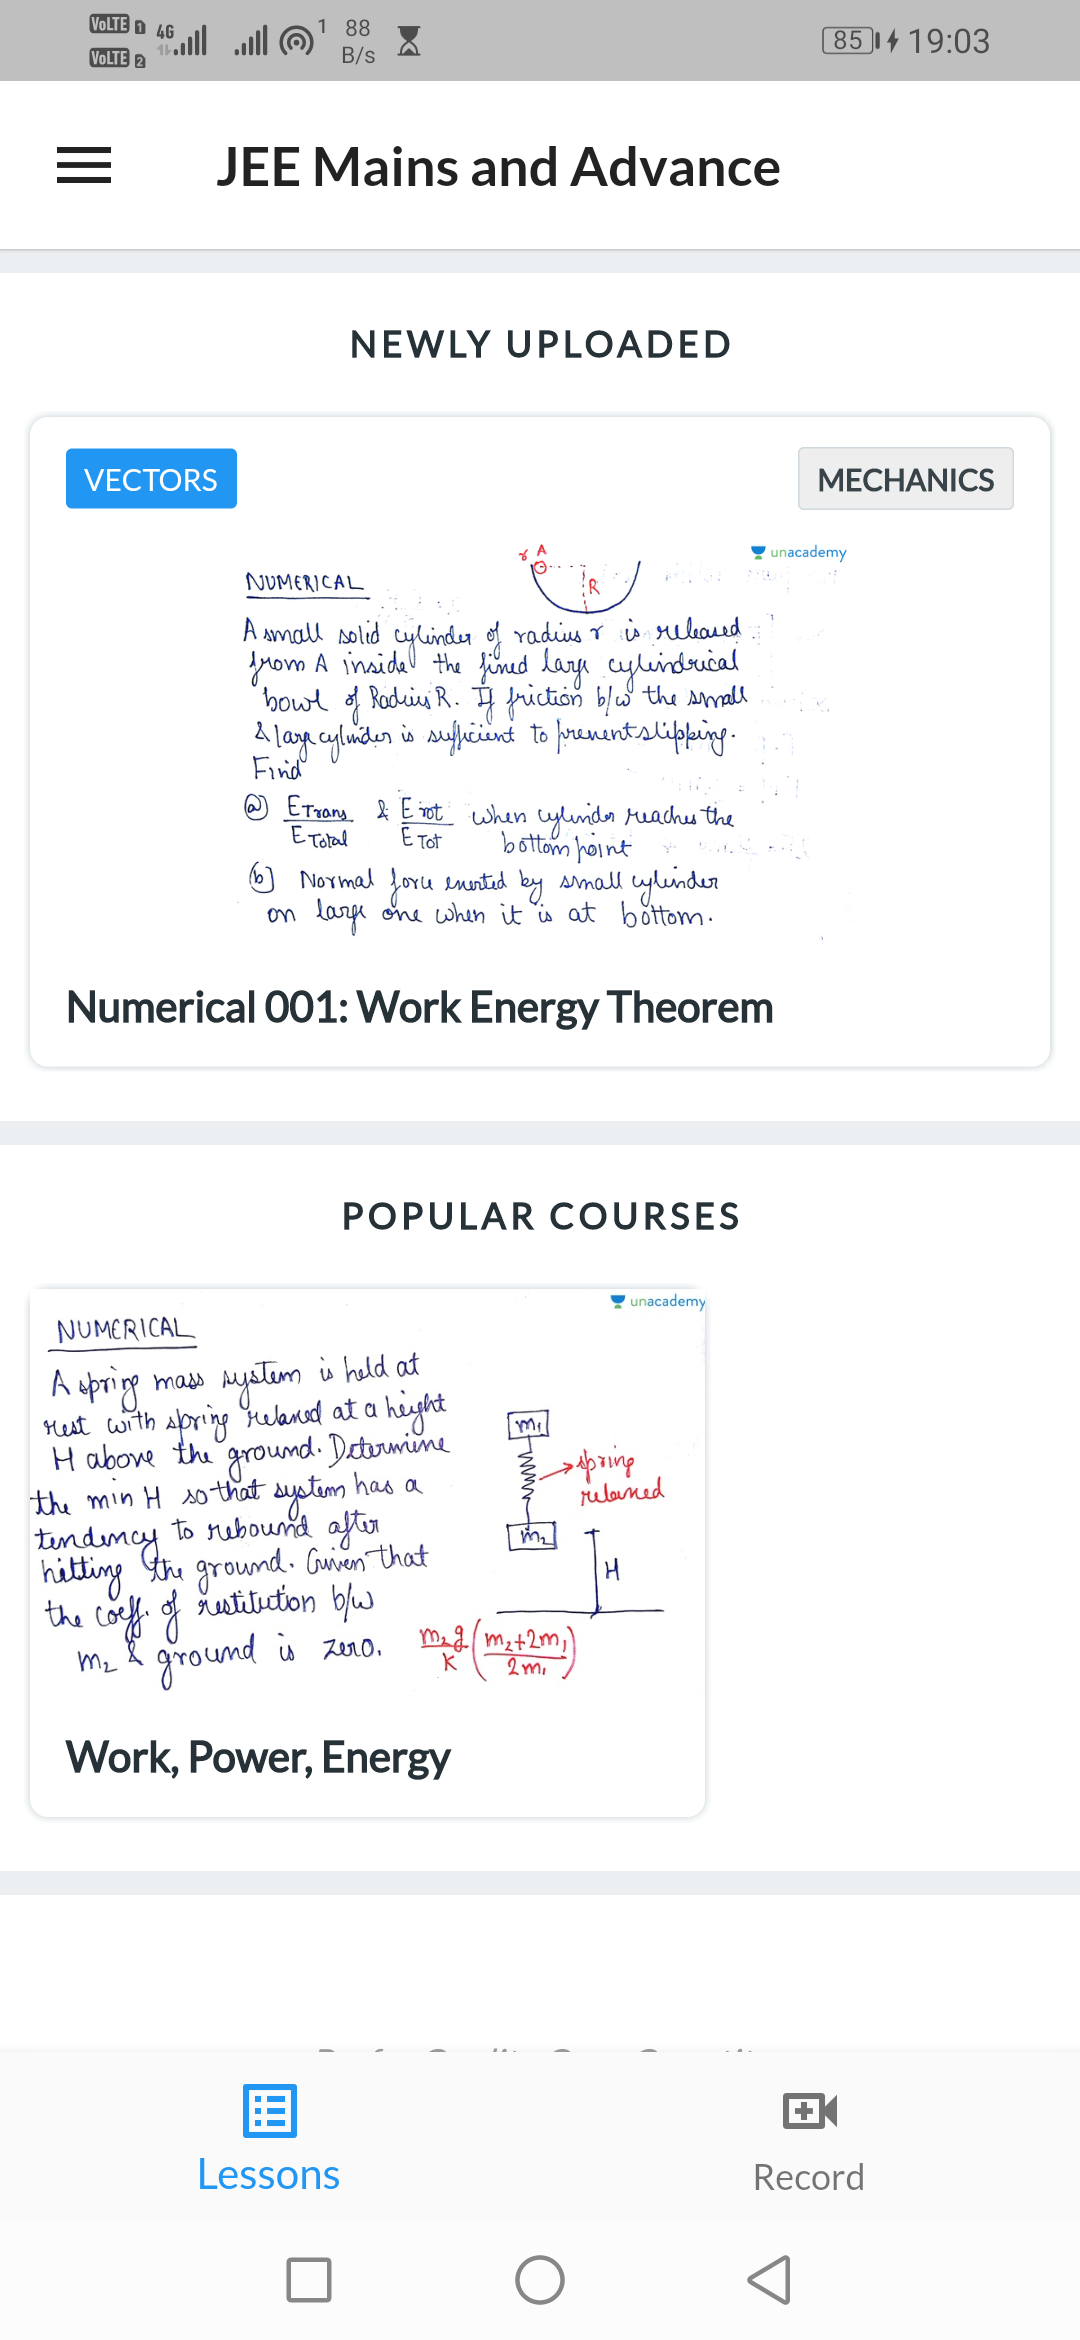 VoLTE 1 4G 1 88
VoLTE 2 B/s
85 19:03
JEE Mains and Advance
NEWLY UPLOADED
VECTORS
MECHANICS
unacademy
r A
R
NUMERICAL
A small solid cylinder of radius r is released
from A inside the fixed large cylindrical
bowl of Radius R. If friction b/w the small
& large cylinder is sufficient to prevent slipping.
Find
(a) ETrans / ETotal & Erot / ETot when cylinder reaches the
bottom point
(b) Normal force exerted by small cylinder
on large one when it is at bottom.
Numerical 001: Work Energy Theorem
POPULAR COURSES
unacademy
NUMERICAL
A spring mass system is held at
rest with spring relaxed at a height
H above the ground. Determine
the min H so that system has a
tendency to rebound after
hitting the ground. Given that
the coeff. of restitution b/w
m₂ & ground is zero.
m₁
spring
relaxed
m₂
H
m₂g/K (m₂+2m₁ / 2m₁)
Work, Power, Energy
Lessons
Record